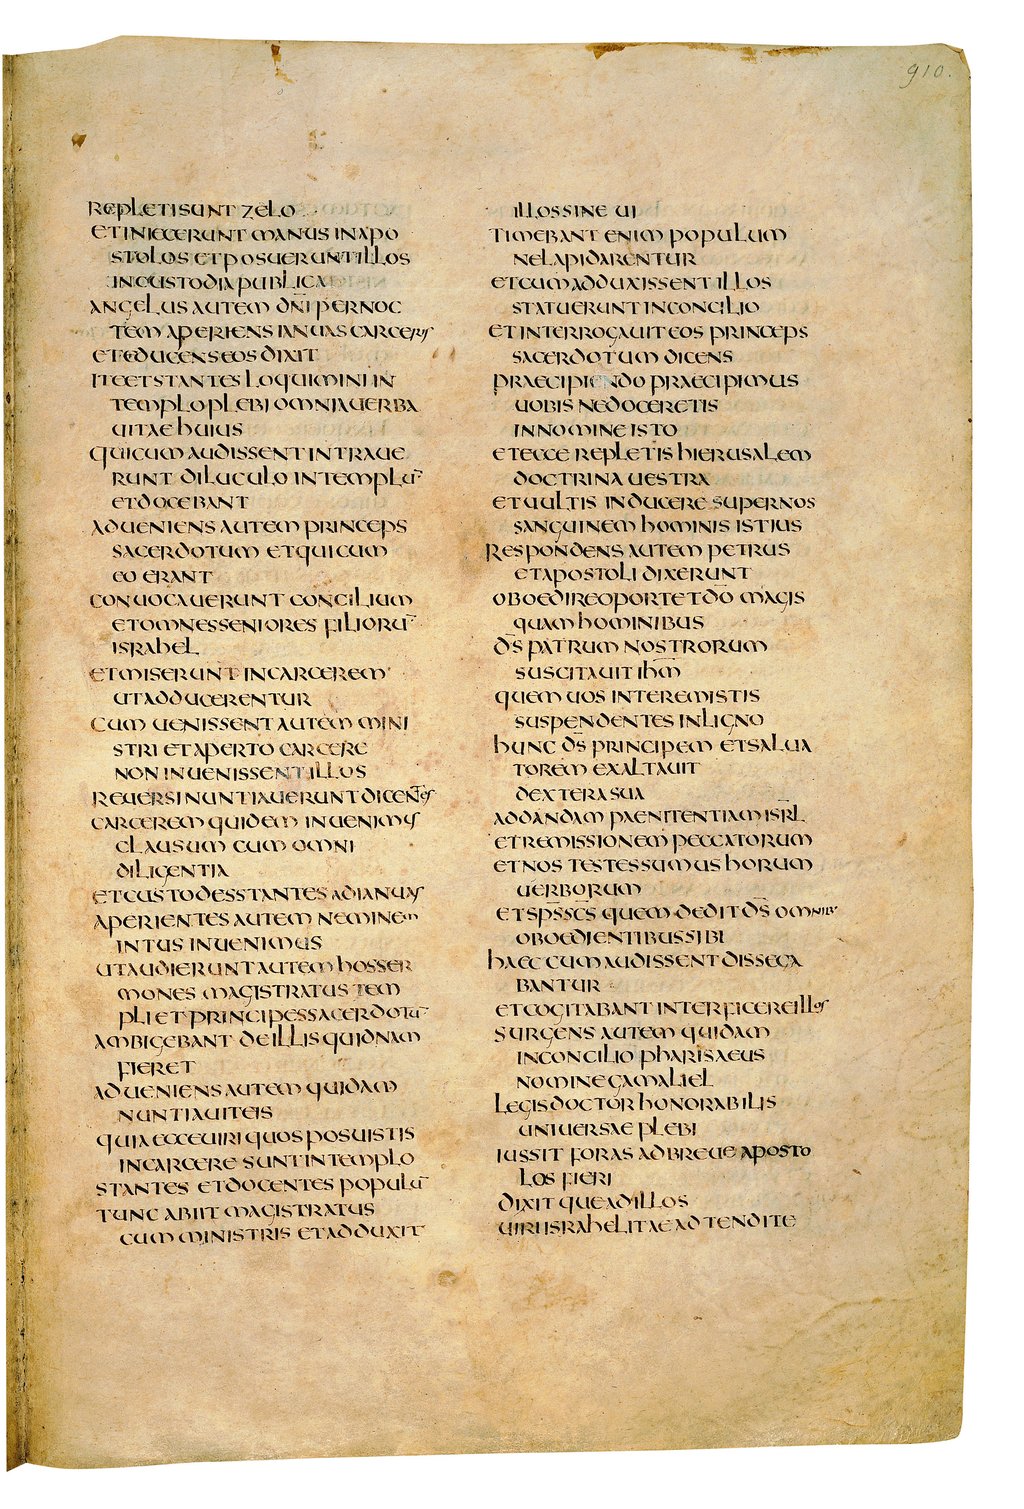 910.
REPLETI SUNT ZELO
ET INIECERUNT MANUS IN APO
STOLOS ET POSUERUNT ILLOS
IN CUSTODIA PUBLICA
ANGELUS AUTEM DN̅I PER NOC
TEM APERIENS IANUAS CARCERIS
ET EDUCENS EOS DIXIT
ITE ET STANTES LOQUIMINI IN
TEMPLO PLEBI OMNIA UERBA
UITAE HUIUS
QUI CUM AUDISSENT INTRAUE
RUNT DILUCULO IN TEMPLU̅
ET DOCEBANT
ADUENIENS AUTEM PRINCEPS
SACERDOTUM ET QUI CUM
EO ERANT
CONUOCAUERUNT CONCILIUM
ET OMNES SENIORES FILIORU̅
ISRAHEL
ET MISERUNT IN CARCEREM
UT ADDUCERENTUR
CUM UENISSENT AUTEM MINI
STRI ET APERTO CARCERE
NON INUENISSENT ILLOS
REUERSI NUNTIAUERUNT DICENTES
CARCEREM QUIDEM INUENIMUS
CLAUSUM CUM OMNI
DILIGENTIA
ET CUSTODES STANTES AD IANUAS
APERIENTES AUTEM NEMINEM
INTUS INUENIMUS
UT AUDIERUNT AUTEM HOS SER
MONES MAGISTRATUS TEM
PLI ET PRINCIPES SACERDOTU̅
AMBIGEBANT DE ILLIS QUIDNAM
FIERET
ADUENIENS AUTEM QUIDAM
NUNTIAUIT EIS
QUIA ECCE UIRI QUOS POSUISTIS
IN CARCERE SUNT IN TEMPLO
STANTES ET DOCENTES POPULU̅
TUNC ABIIT MAGISTRATUS
CUM MINISTRIS ET ADDUXIT
ILLOS SINE UI
TIMEBANT ENIM POPULUM
NE LAPIDARENTUR
ET CUM ADDUXISSENT ILLOS
STATUERUNT IN CONCILIO
ET INTERROGAUIT EOS PRINCEPS
SACERDOTUM DICENS
PRAECIPIENDO PRAECIPIMUS
UOBIS NE DOCERETIS
IN NOMINE ISTO
ET ECCE REPLETIS HIERUSALEM
DOCTRINA UESTRA
ET UULTIS INDUCERE SUPER NOS
SANGUINEM HOMINIS ISTIUS
RESPONDENS AUTEM PETRUS
ET APOSTOLI DIXERUNT
OBOEDIRE OPORTET D̅O MAGIS
QUAM HOMINIBUS
D̅S PATRUM NOSTRORUM
SUSCITAUIT IH̅M
QUEM UOS INTEREMISTIS
SUSPENDENTES IN LIGNO
HUNC D̅S PRINCIPEM ET SALUA
TOREM EXALTAUIT
DEXTERA SUA
AD DANDAM PAENITENTIAM ISR̅L
ET REMISSIONEM PECCATORUM
ET NOS TESTES SUMUS HORUM
UERBORUM
ET SP̅S S̅C̅S QUEM DEDIT D̅S OMNIB·
OBOEDIENTIBUS SIBI
HAEC CUM AUDISSENT DISSECA
BANTUR
ET COGITABANT INTERFICERE ILLOS
SURGENS AUTEM QUIDAM
IN CONCILIO PHARISAEUS
NOMINE GAMALIEL
LEGIS DOCTOR HONORABILIS
UNIUERSAE PLEBI
IUSSIT FORAS AD BREUE APOSTO
LOS FIERI
DIXITQUE AD ILLOS
UIRI ISRAHELITAE ADTENDITE